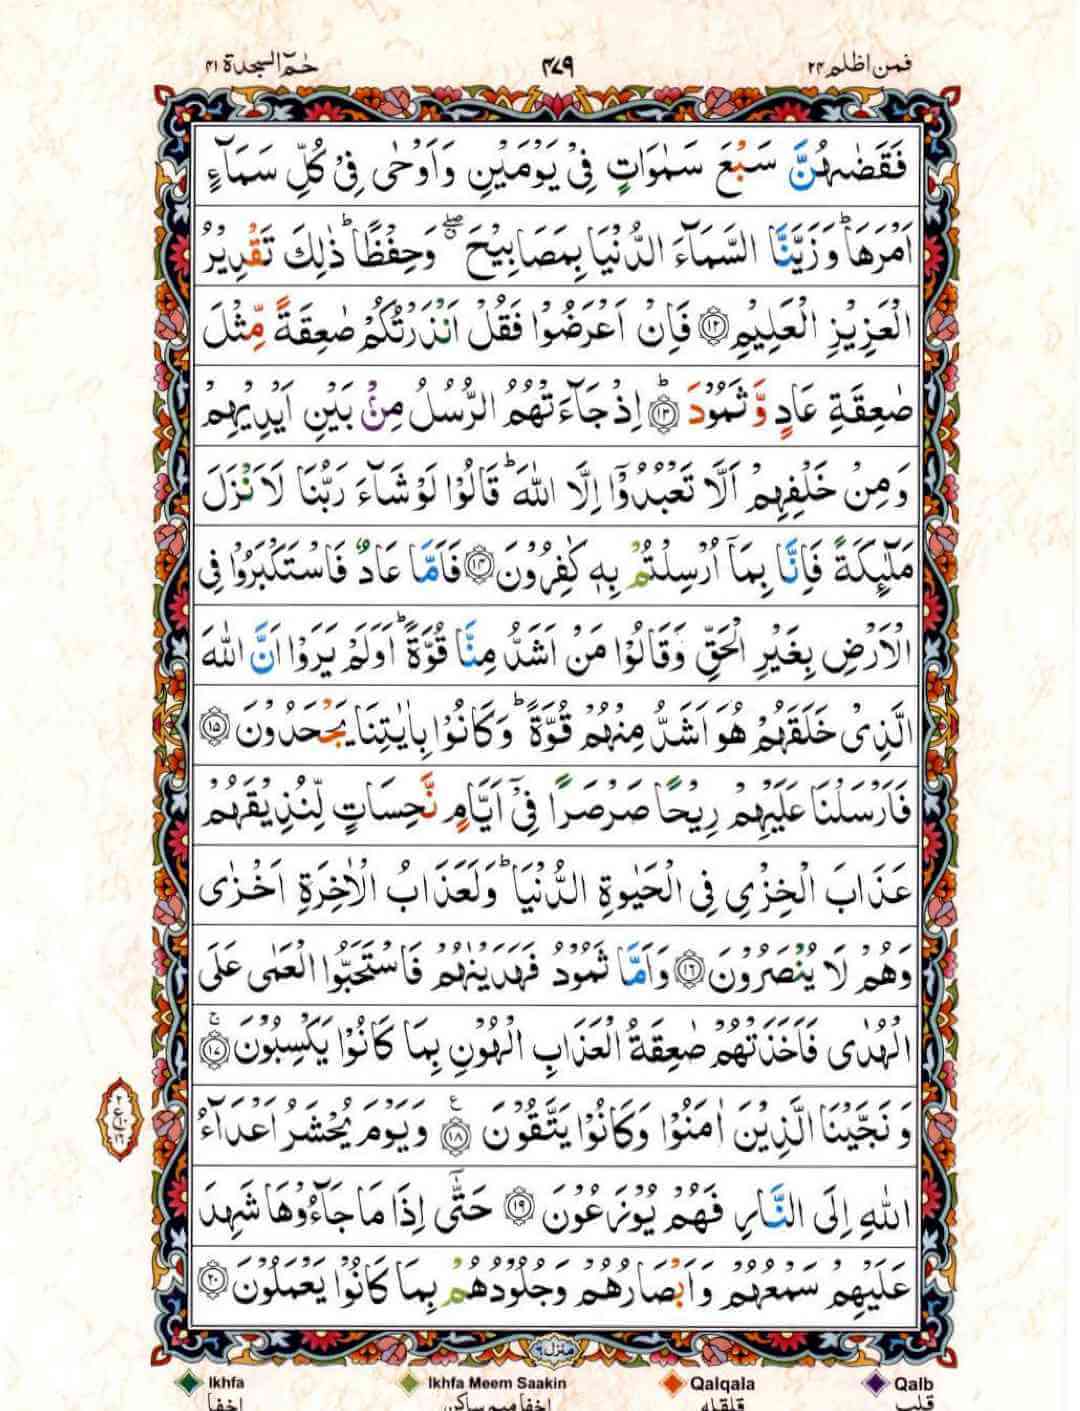 فمن اظلم ۲۴ ۴۷۹ حٰمٓ السجدة ۴۱
فَقَضٰىهُنَّ سَبْعَ سَمٰوَاتٍ فِیْ یَوْمَیْنِ وَاَوْحٰی فِیْ كُلِّ سَمَآءٍ
اَمْرَهَا ؕ وَزَیَّنَّا السَّمَآءَ الدُّنْیَا بِمَصَابِیْحَ ۖۗ وَحِفْظًا ؕ ذٰلِكَ تَقْدِیْرُ
الْعَزِیْزِ الْعَلِیْمِ ﴿۱۲﴾ فَاِنْ اَعْرَضُوْا فَقُلْ اَنْذَرْتُكُمْ صٰعِقَةً مِّثْلَ
صٰعِقَةِ عَادٍ وَّثَمُوْدَ ﴿۱۳﴾ؕ اِذْ جَآءَتْهُمُ الرُّسُلُ مِنْۢ بَیْنِ اَیْدِیْهِمْ
وَمِنْ خَلْفِهِمْ اَلَّا تَعْبُدُوْۤا اِلَّا اللّٰهَ ؕ قَالُوْا لَوْ شَآءَ رَبُّنَا لَاَنْزَلَ
مَلٰٓئِكَةً فَاِنَّا بِمَاۤ اُرْسِلْتُمْ بِهٖ كٰفِرُوْنَ ﴿۱۴﴾ فَاَمَّا عَادٌ فَاسْتَكْبَرُوْا فِی
الْاَرْضِ بِغَیْرِ الْحَقِّ وَقَالُوْا مَنْ اَشَدُّ مِنَّا قُوَّةً ؕ اَوَلَمْ یَرَوْا اَنَّ اللّٰهَ
الَّذِیْ خَلَقَهُمْ هُوَ اَشَدُّ مِنْهُمْ قُوَّةً ؕ وَكَانُوْا بِاٰیٰتِنَا یَجْحَدُوْنَ ﴿۱۵﴾
فَاَرْسَلْنَا عَلَیْهِمْ رِیْحًا صَرْصَرًا فِیْۤ اَیَّامٍ نَّحِسَاتٍ لِّنُذِیْقَهُمْ
عَذَابَ الْخِزْیِ فِی الْحَیٰوةِ الدُّنْیَا ؕ وَلَعَذَابُ الْاٰخِرَةِ اَخْزٰی
وَهُمْ لَا یُنْصَرُوْنَ ﴿۱۶﴾ وَاَمَّا ثَمُوْدُ فَهَدَیْنٰهُمْ فَاسْتَحَبُّوا الْعَمٰی عَلَی
الْهُدٰی فَاَخَذَتْهُمْ صٰعِقَةُ الْعَذَابِ الْهُوْنِ بِمَا كَانُوْا یَكْسِبُوْنَ ﴿۱۷﴾ۚ
وَنَجَّیْنَا الَّذِیْنَ اٰمَنُوْا وَكَانُوْا یَتَّقُوْنَ ﴿۱۸﴾ ع وَیَوْمَ یُحْشَرُ اَعْدَآءُ
اللّٰهِ اِلَی النَّارِ فَهُمْ یُوْزَعُوْنَ ﴿۱۹﴾ حَتّٰۤی اِذَا مَا جَآءُوْهَا شَهِدَ
عَلَیْهِمْ سَمْعُهُمْ وَاَبْصَارُهُمْ وَجُلُوْدُهُمْ بِمَا كَانُوْا یَعْمَلُوْنَ ﴿۲۰﴾
منزل ۶
Ikhfa Ikhfa Meem Saakin Qalqala Qalb
اخفا اخفا میم ساکن قلقله قلب